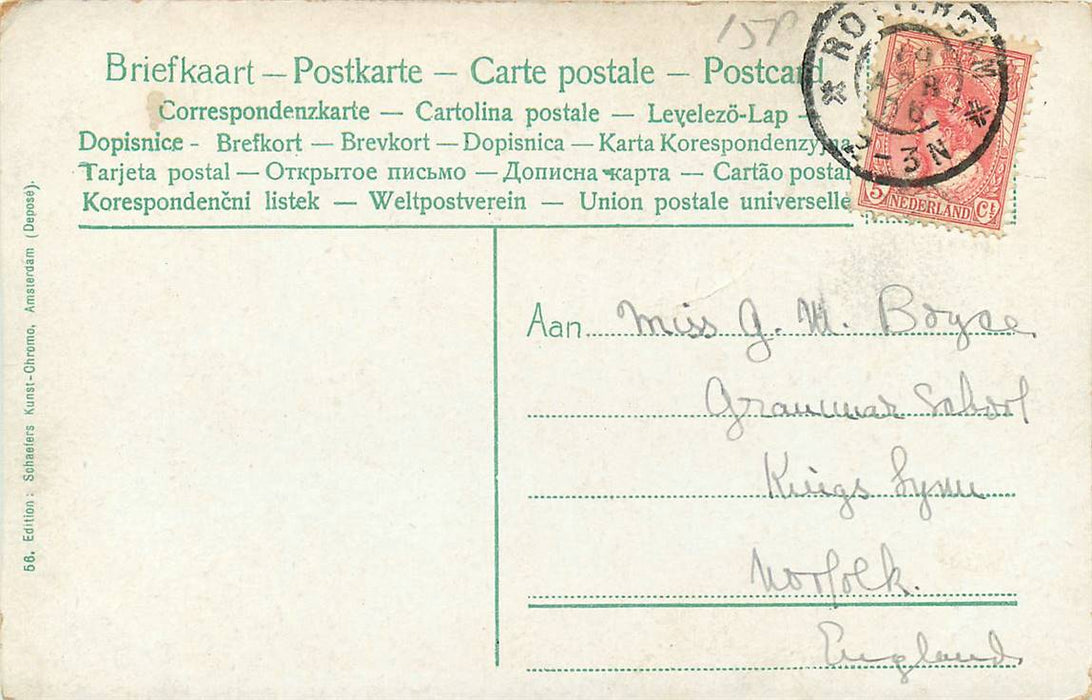 15P
Briefkaart — Postkarte — Carte postale — Postcard
Correspondenzkarte — Cartolina postale — Levelező-Lap -
Dopisnice - Brefkort — Brevkort — Dopisnica — Karta Korespondenzyjna
Tarjeta postal — Открытое письмо — Дописна карта — Cartão postal
Korespondenčni listek — Weltpostverein — Union postale universelle
ROTTERDAM
3 - 3 N
5 NEDERLAND Ct
Aan Miss G. M. Boyce
Grammar School
Kings Lynn
Norfolk.
England.
56. Edition: Schaefers Kunst-Chromo, Amsterdam (Deposé).